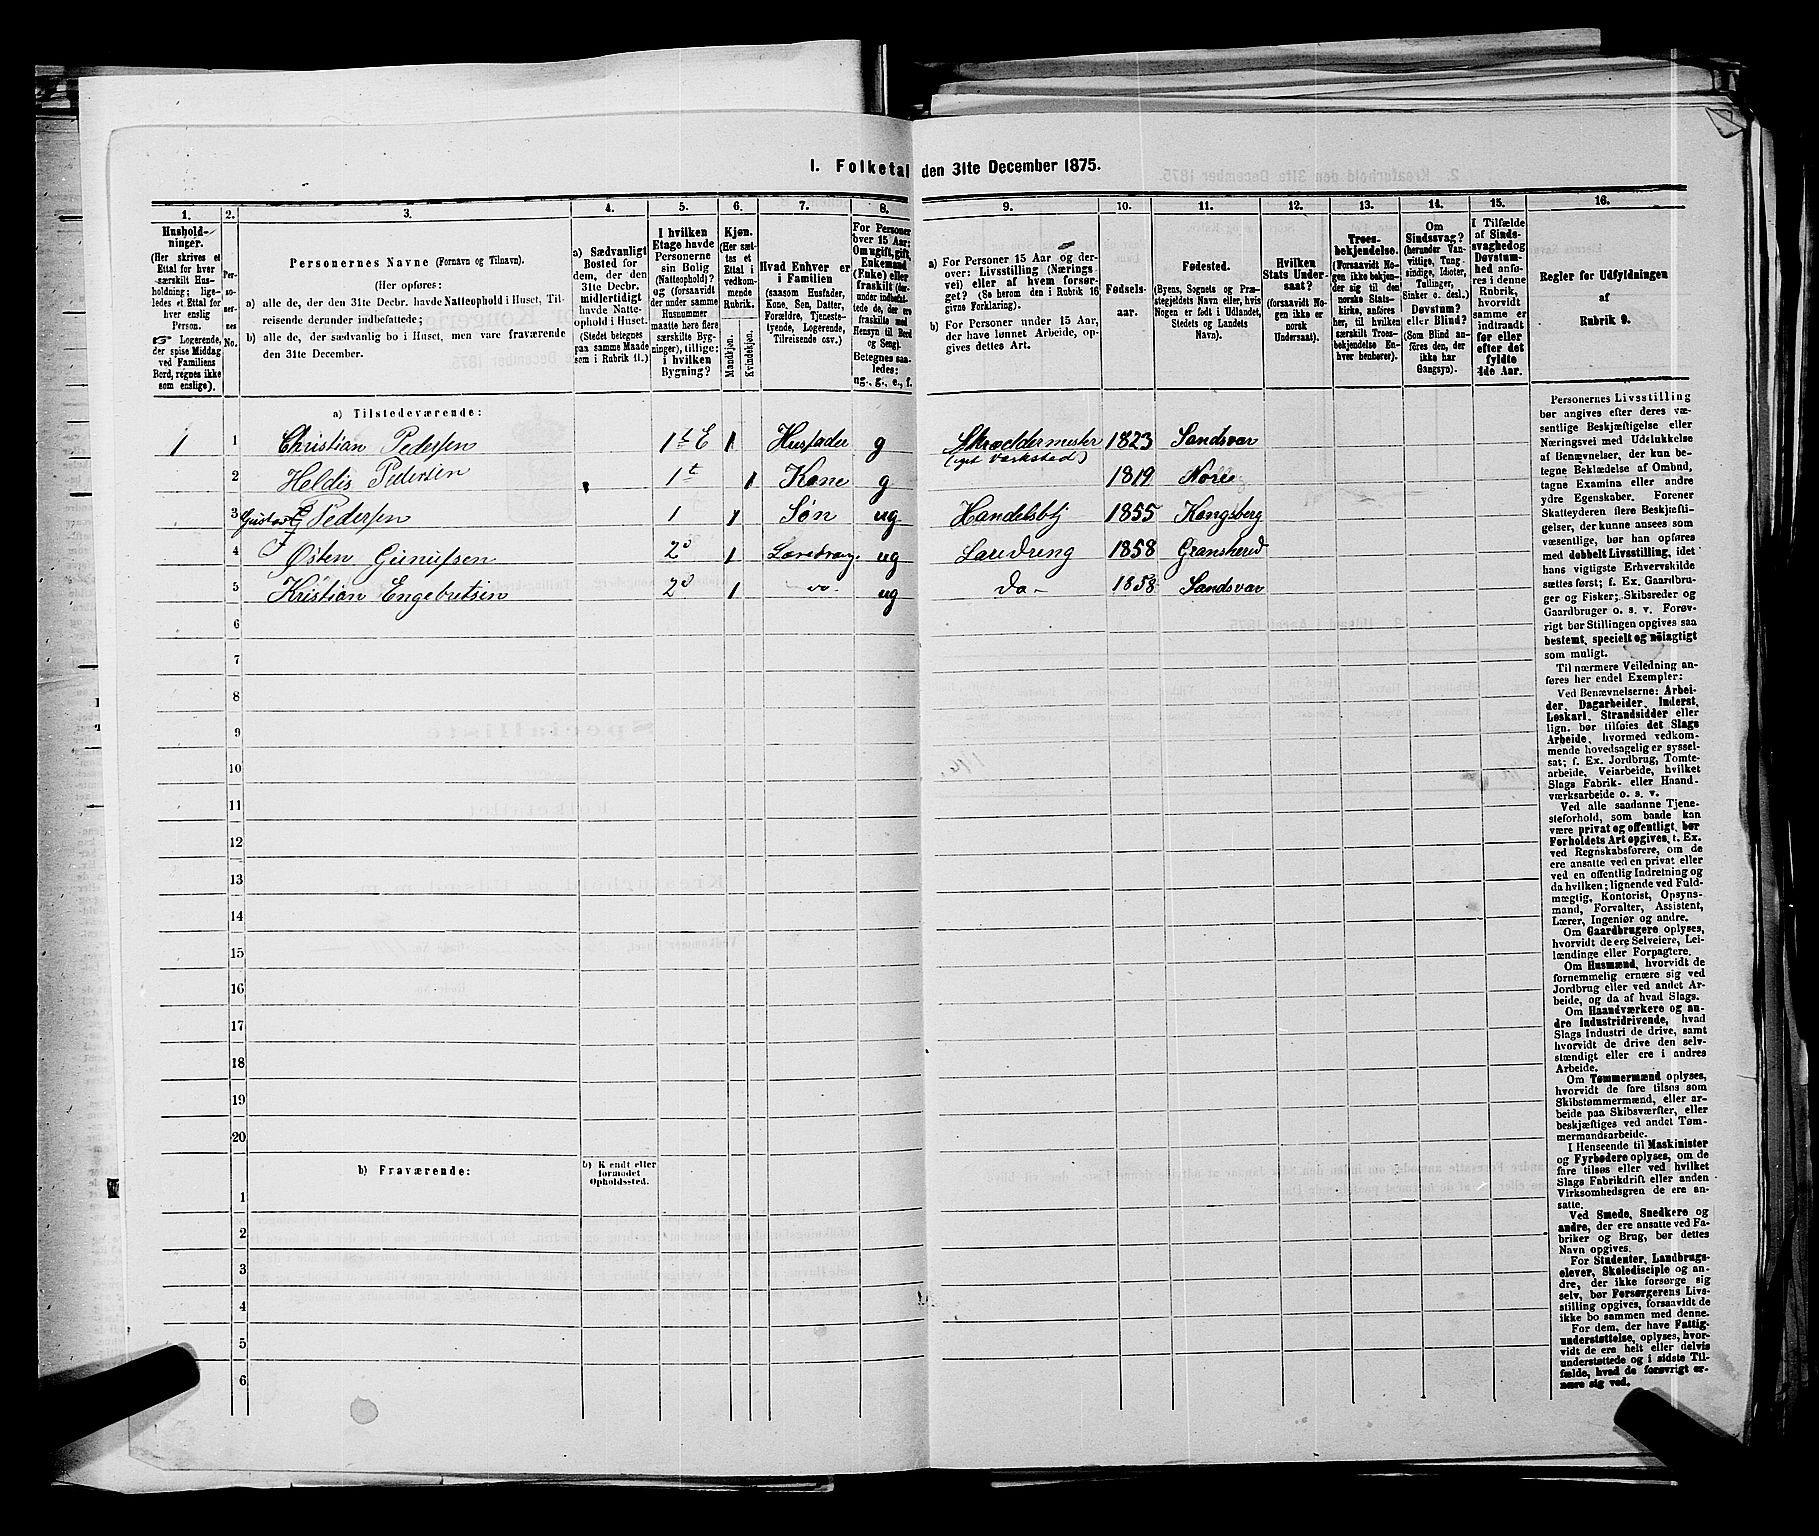 I. Folketal den 31te December 1875.
1. 2. 3. 4. 5. 6. 7. 8. 9. 10. 11. 12. 13. 14. 15. 16.
Husholdninger.
(Her skrives et
Ettal for hver
særskilt Husholdning;
ligeledes
et Ettal for
hver enslig
Person.
Logerende,
der spise Middag
ved Familiens
Bord, regnes ikke
som enslige).
Personernes
No.
Personernes Navne (Fornavn og Tilnavn).
(Her opføres:
a) alle de, der den 31te Decbr. havde Natteophold i Huset, Tilreisende
derunder indbefattede;
b) alle de, der sædvanlig bo i Huset, men vare fraværende
den 31te December.
a) Sædvanligt
Bosted for
dem, der den
31te Decbr.
midlertidigt
havde Natteophold
i Huset.
(Stedet betegnes
paa samme Maade
som i Rubrik 11.)
I hvilken
Etage havde
Personerne
sin Bolig
(Natteophold)?
(forsaavidt
der under samme
Husnummer
maatte høre flere
særskilte Bygninger),
tillige:
i hvilken
Bygning?
Kjøn.
(Her sættes
et Ettal i
vedkommende
Rubrik.
Mandkjøn.
Kvindekjøn.
Hvad Enhver er
i Familien
(saasom Husfader,
Kone, Søn, Datter,
Forældre, Tjenestetyende,
Logerende,
Tilreisende osv.)
For Personer
over 15 Aar:
Om ugift, gift,
Enkemand
(Enke) eller
fraskilt (derunder
indbefattede
de, der ere
fraskilte med
Hensyn til Bord
og Seng).
Betegnes saaledes:
ug., g., e., f.
a) For Personer 15 Aar og derover:
Livsstilling (Næringsvei)
eller af hvem forsørget?
(Se herom den i Rubrik 16
givne Forklaring).
b) For Personer under 15 Aar,
der have lønnet Arbeide, opgives
dettes Art.
Fødselsaar.
Fødested.
(Byens, Sognets og Præstegjeldets
Navn eller, hvis
Nogen er født i Udlandet,
Stedets og Landets
Navn).
Hvilken
Stats Undersaat?
(forsaavidt Nogen
ikke er
norsk
Undersaat).
Troesbekjendelse.
(Forsaavidt Nogen
ikke bekjender
sig til den
norske Statskirke,
anføres
her, til hvilken
særskilt Troesbekjendelse
Enhver
henhører).
Om
Sindssvag?
(herunder Vanvittige,
Tungsindige,
Idioter,
Tullinger,
Sinker o. desl.)
Døvstum?
eller Blind?
(Som Blind anføres
den, der
ikke har
Gangsyn).
I Tilfælde
af Sindssvaghed
og
Døvstumhed
anføres
i denne
Rubrik,
hvorvidt
samme er
indtraadt
før eller
efter det
fyldte
4de Aar.
Regler for Udfyldningen
af
Rubrik 9.
a) Tilstedeværende:
1 1 Christian Pedersen 1t E 1 Husfader g Skræddermester 1823 Sandsvær
2 Heldis Pedersen 1t 1 Kone g 1819 Nore
3 Gustav Pedersen 1 1 Søn ug Handelsbtj 1855 Kongsberg
4 Østen Gunufsen 2d 1 Læredreng ug Læredreng 1858 Gransherad
5 Kristian Engebretsen 2d 1 do ug do 1858 Sandsvær
6
7
8
9
10
11
12
13
14
15
16
17
18
19
20
b) Fraværende:
b) Kjendt eller
formodet
Opholdssted.
1
2
3
4
5
6
Personernes Livsstilling
bør angives efter deres væsentlige
Beskjæftigelse eller
Næringsvei med Udelukkelse
af Benævnelser, der kun betegne
Beklædelse af Ombud,
tagne Examina eller andre
ydre Egenskaber. Forener
Skatteyderen flere Beskjæftigelser,
der kunne ansees som
væsentlige, bør han opføres
med dobbelt Livsstilling, idet
hans vigtigste Erhvervskilde
sættes først; f. Ex. Gaardbruger
og Fisker; Skibsreder og
Gaardbruger o. s. v. Forøvrigt
bør Stillingen opgives saa
bestemt, specielt og nøiagtigt
som muligt.
Til nærmere Veiledning anføres
her endel Exempler:
Ved Benævnelserne: Arbeider,
Dagarbeider, Inderst,
Løskarl, Strandsidder eller
lign. bør tilføies det Slags
Arbeide, hvormed vedkommende
hovedsagelig er sysselsat;
f. Ex. Jordbrug, Tomtearbeide,
Veiarbeide, hvilket
Slags Fabrik- eller Haandværksarbeide
o. s. v.
Ved alle saadanne Tjenesteforhold,
som baade kan
være privat og offentligt, bør
Forholdets Art opgives, t. Ex.
ved Regnskabsførere, om de
ere ansatte ved en privat eller
ved en offentlig Indretning og
da hvilken; lignende ved Fuldmægtig,
Kontorist, Opsynsmand,
Forvalter, Assistent,
Lærer, Ingeniør og andre.
Om Gaardbrugere oplyses,
hvorvidt de ere Selveiere, Leilændinge
eller Forpagtere.
Om Husmænd, hvorvidt de
fornemmelig ernære sig ved
Jordbrug eller ved andet Arbeide,
og da af hvad Slags.
Om Haandværkere og andre
Industridrivende, hvad
Slags Industri de drive, samt
hvorvidt de drive den selvstændigt
eller ere i andres
Arbeide.
Om Tømmermænd oplyses,
hvorvidt de fare tilsøs som
Skibstømmermænd, eller arbeide
paa Skibsværfter, eller
beskjæftiges ved andet Tømmermandsarbeide.
I Henseende til Maskinister
og Fyrbødere oplyses, om de
fare tilsøs eller ved hvilket
Slags Fabrikdrift eller anden
Virksomhedsgren de ere ansatte.
Ved Smede, Snedkere og
andre, der ere ansatte ved Fabriker
og Brug, bør dettes
Navn opgives.
For Studenter, Landbrugselever,
Skoledisciple og andre,
der ikke forsørge sig
selv, bør Forsørgerens Livsstilling
opgives, forsaavidt de
ikke bo sammen med denne.
For dem, der have Fattigunderstøttelse,
oplyses, hvorvidt
de ere helt eller delvis
understøttede og i sidste Tilfælde,
hvad de forøvrigt ernære
sig ved.